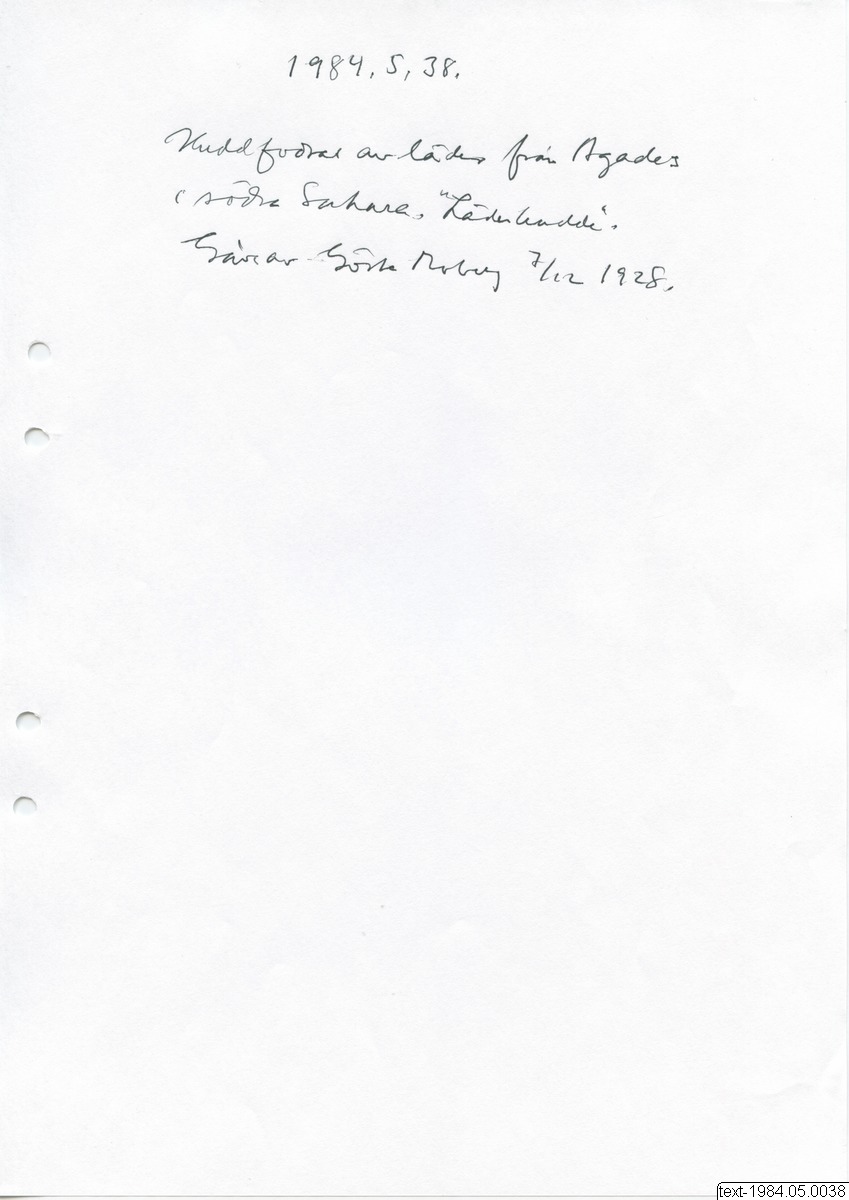 1984.5,38.
Kuddfodral av läder från Agades
i södra Sahara. "Läderkudde".
Gåva av Gösta Moberg 7/12 1928.
text-1984.05.0038